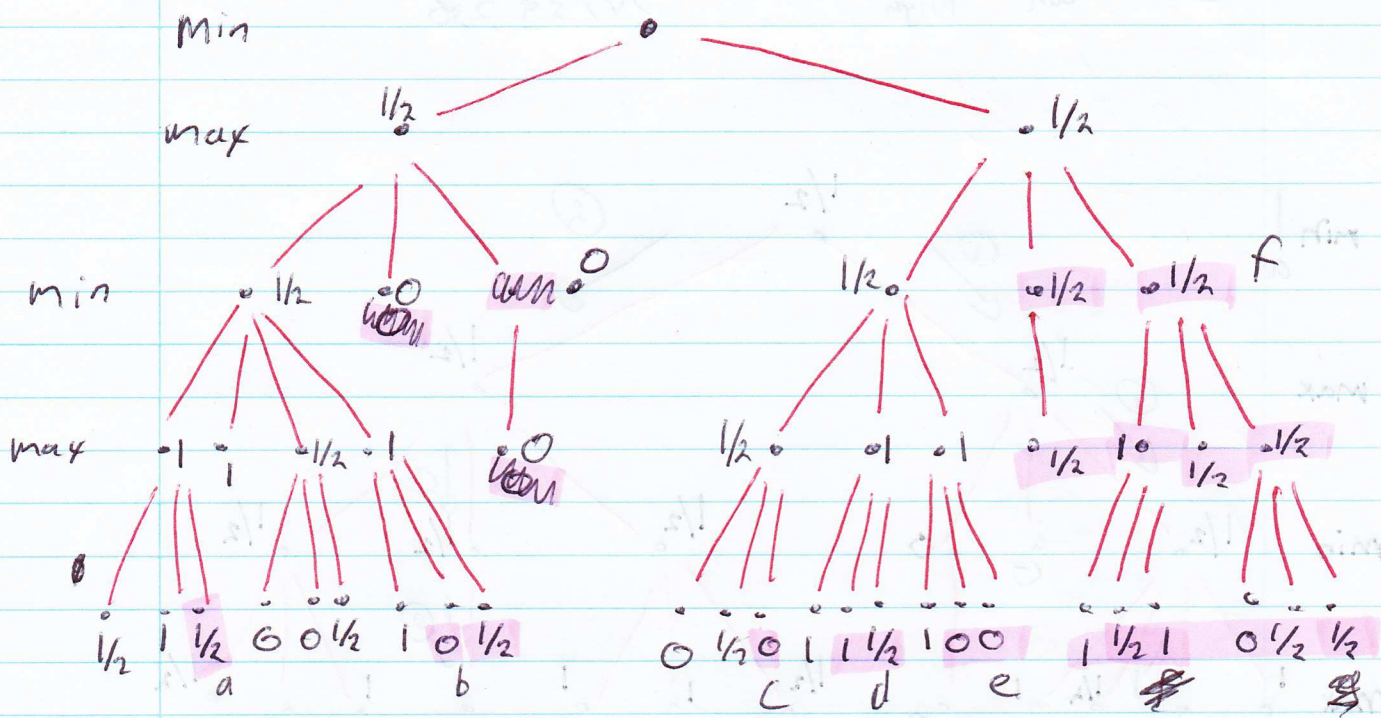 Min
1/2
max 1/2
min 1/2 0 0 1/2 1/2 1/2 f
max 1 1 1/2 1 0 1/2 1 1 1/2 1 1/2 1/2
1/2 1 1/2 0 0 1/2 1 0 1/2 0 1/2 0 1 1 1/2 1 0 0 1 1/2 1 0 1/2 1/2
a b c d e